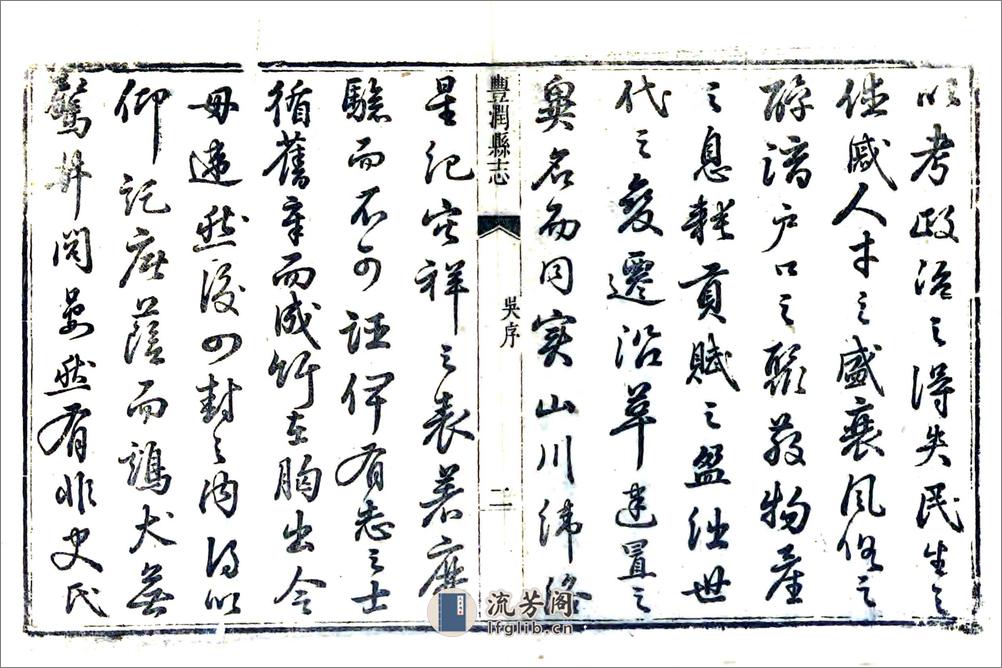 以考政治之得失民生之
休戚人才之盛衰風俗之
醇漓户口之聚散物産
之息耗貢賦之盈絀世
代之變遷沿革建置之
異名而同实山川緯絡
豐潤縣志
吳序
二
星紀灾祥之表著靡
驗而不可誣伊有志之士
循舊章而成竹在胸出令
毋違然後四封之内得以
仰託庇蔭而鷄犬無
驚井閭晏然有非史氏
流芳阁
lfglib.cn